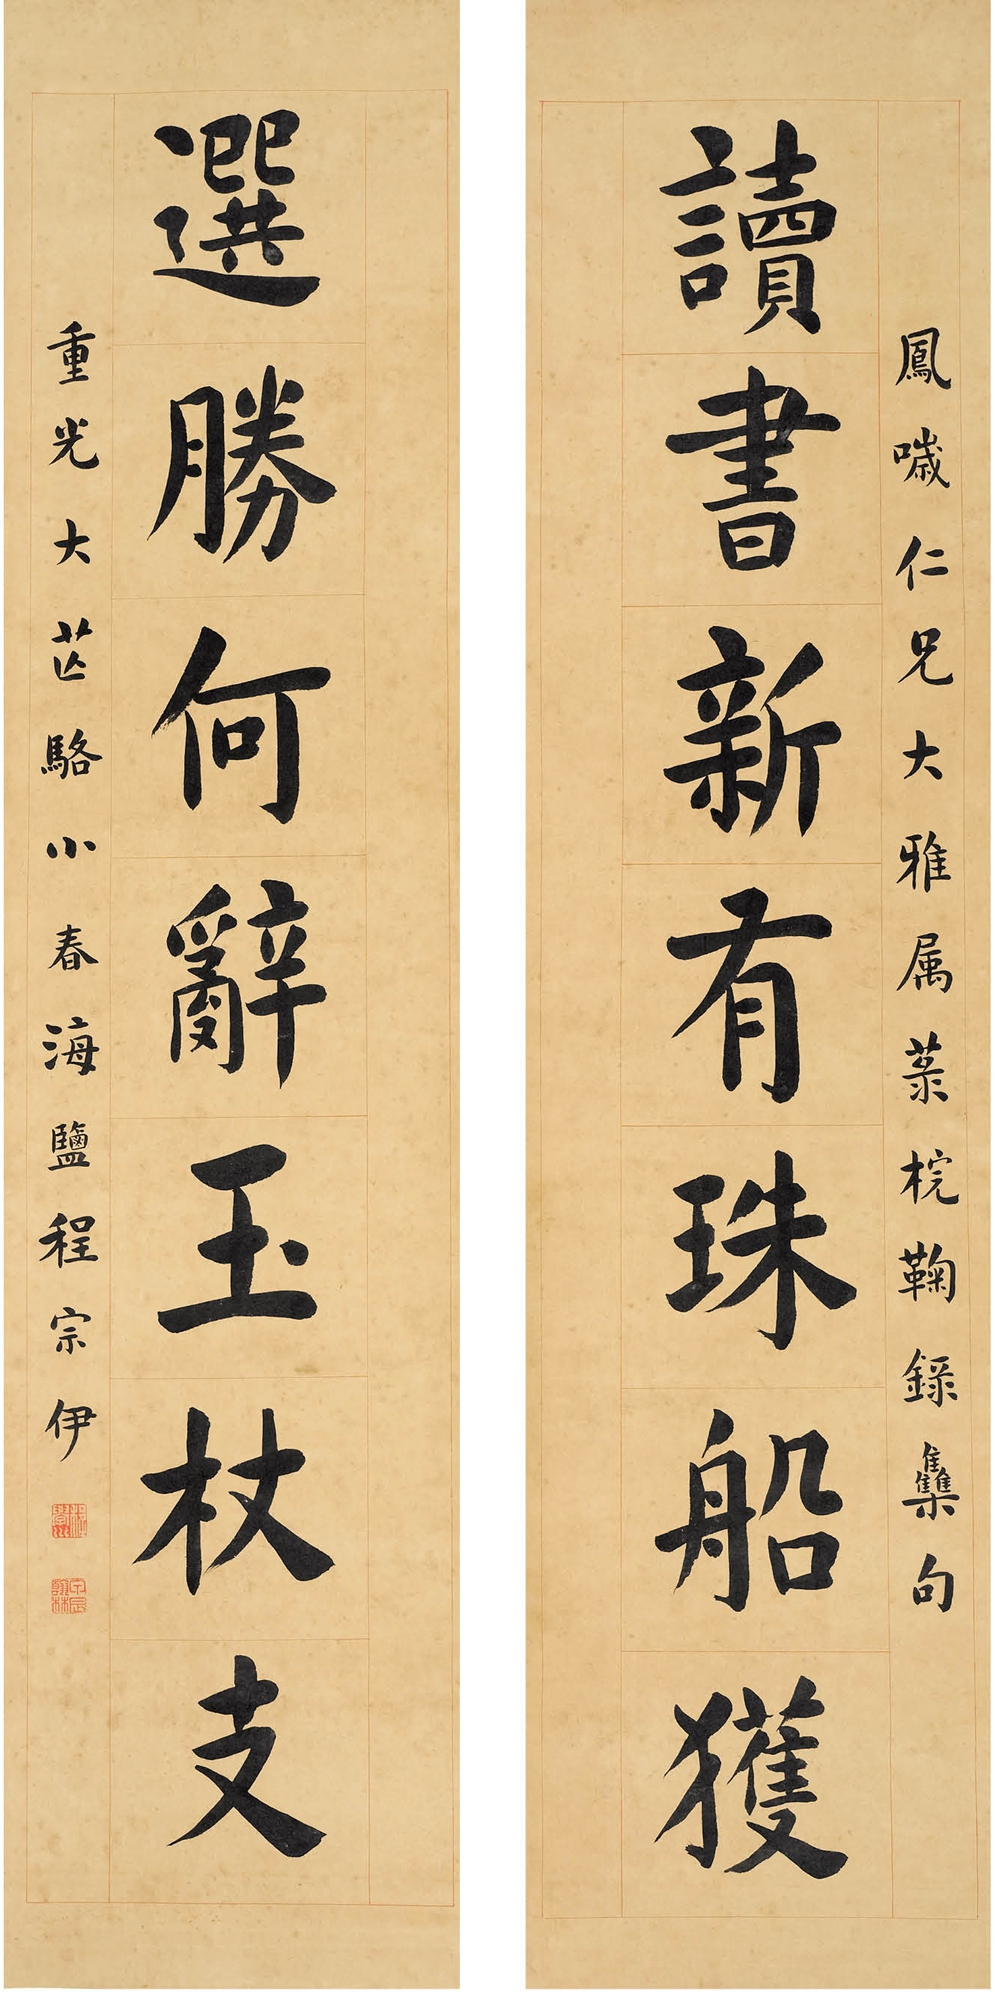 鳳噦仁兄大雅属菉梡鞠錄雧句
讀書新有珠船獲
選勝何辭玉杖支
重光大芒駱小春海鹽程宗伊